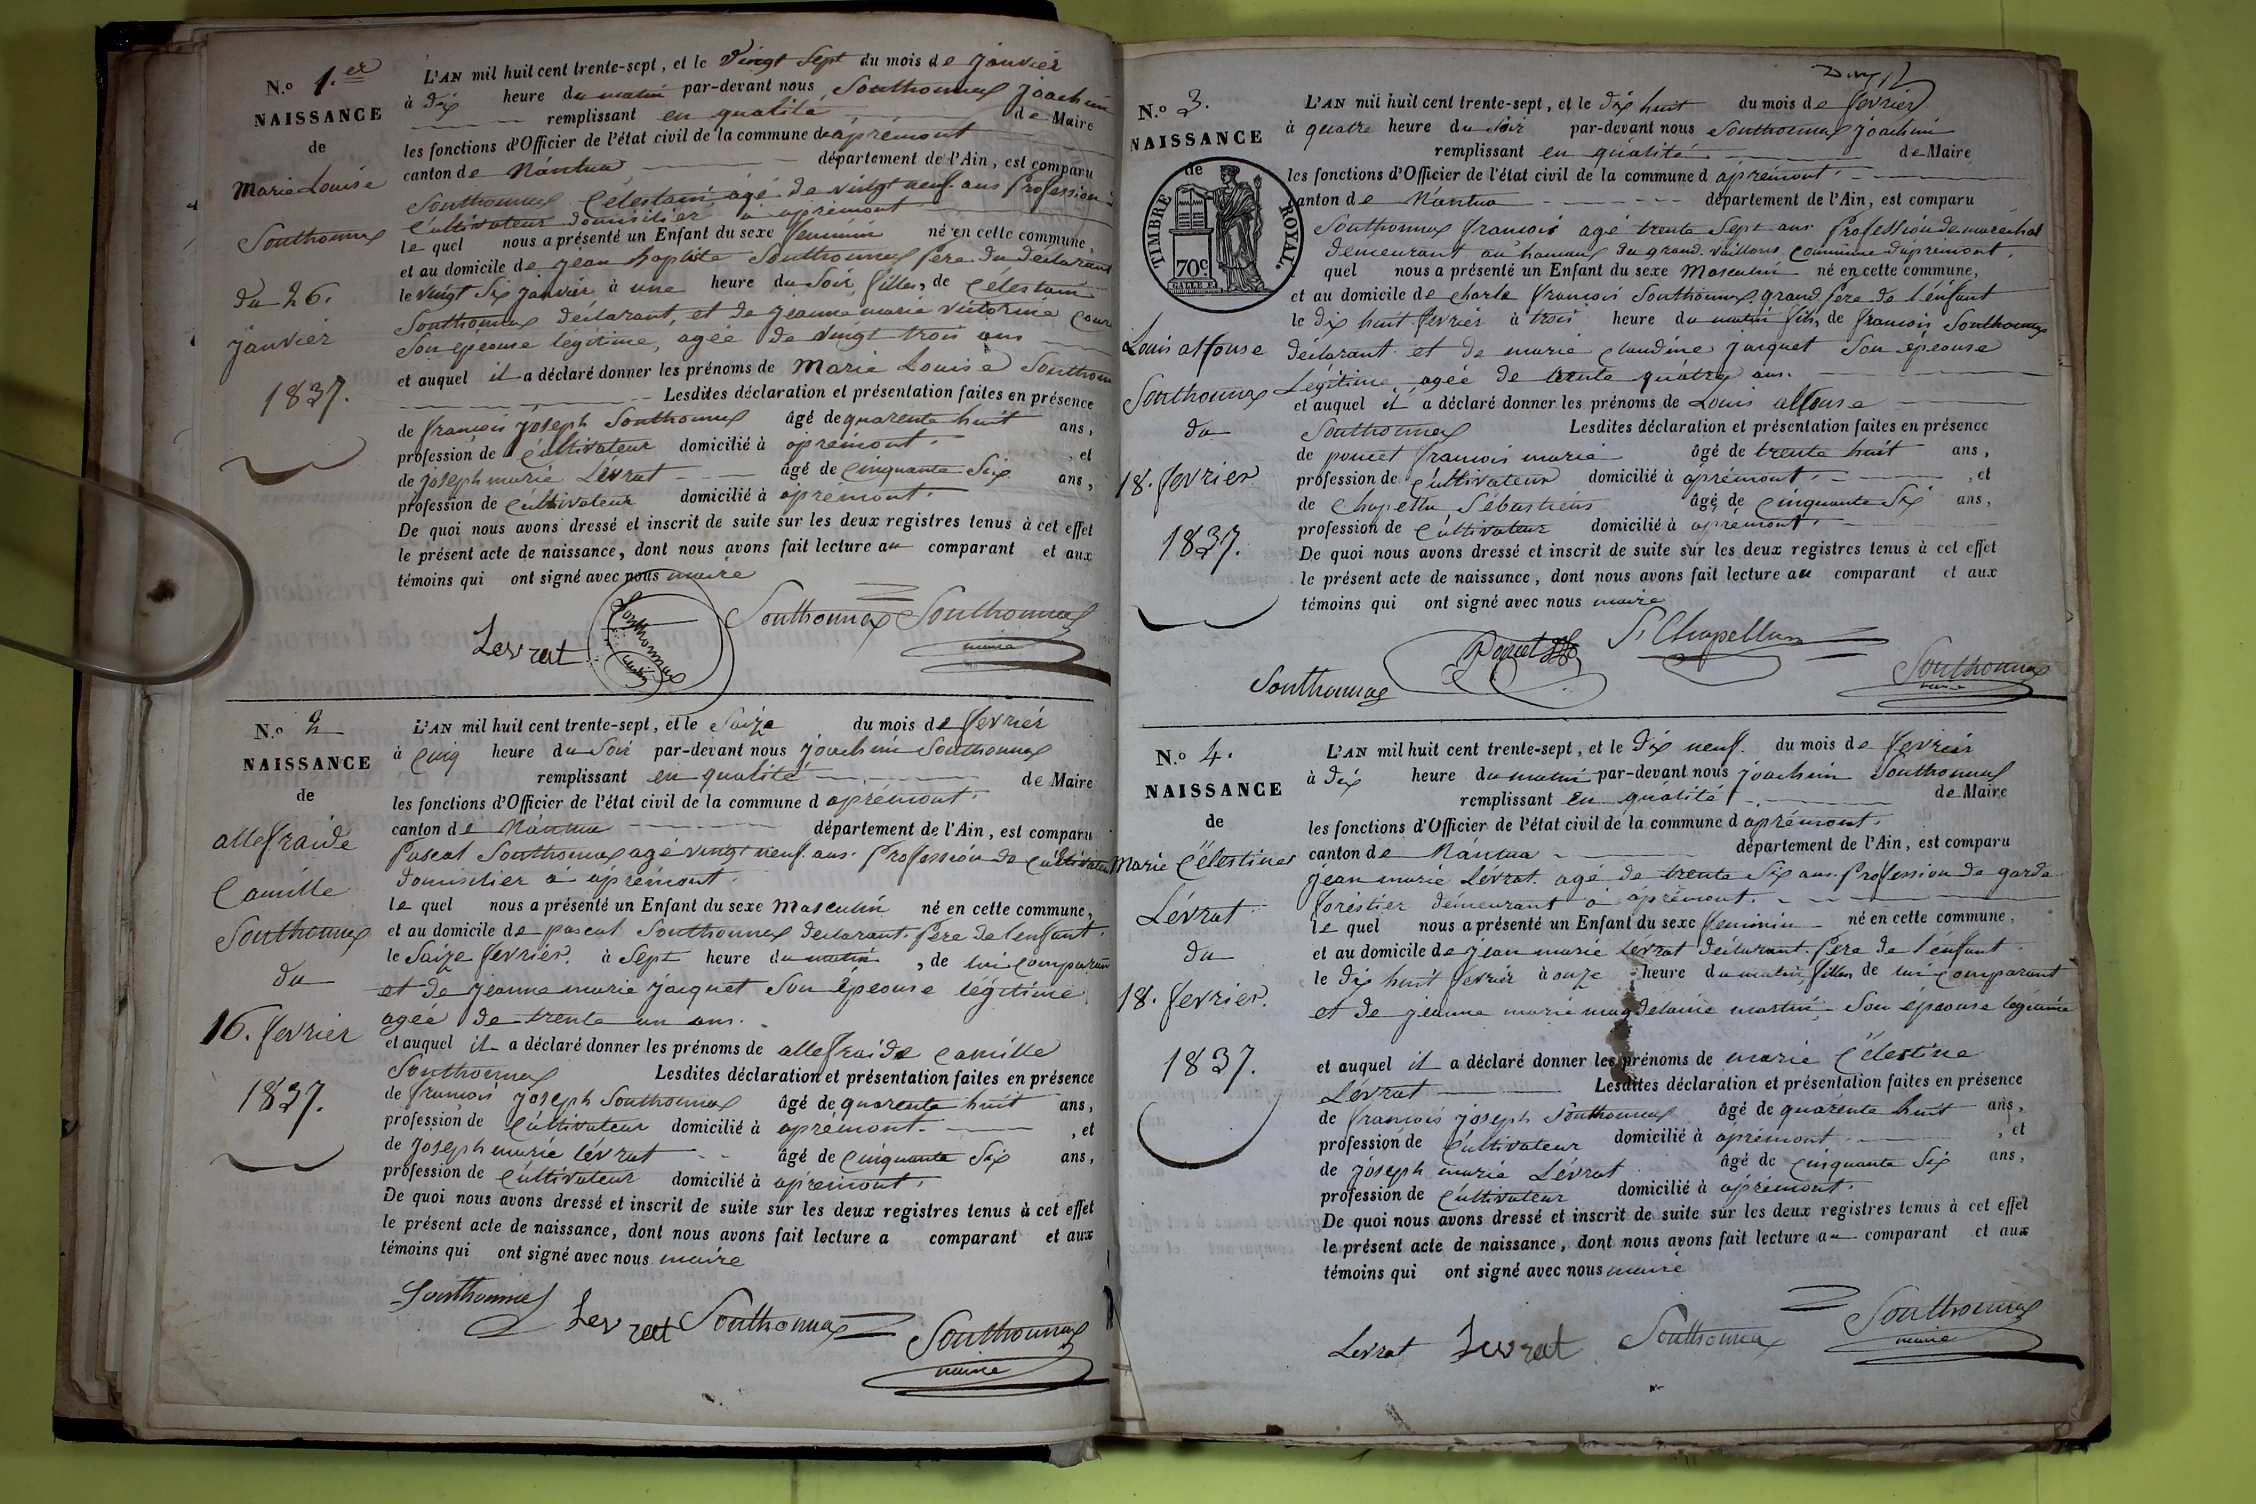 N.o 1.er
NAISSANCE
de
Marie Louise
Southonnax
du 26.
janvier
1837.
L'AN mil huit cent trente-sept, et le vingt sept du mois de janvier
à dix heure du matin par-devant nous Southonnax joachim
remplissant en qualité de Maire
les fonctions d'Officier de l'état civil de la commune de aprémont
canton de Nantua département de l'Ain, est comparu
Southonnax Célestain agé de vingt neuf ans Profession
Cultivateur domicilier a aprémont
le quel nous a présenté un Enfant du sexe feminin né en cette commune,
et au domicile de jean baptiste Southonnax père du déclarant
le vingt six janvier à une heure du Soir, filles, de Célestain
Southonnax déclarant, et de jeanne marie victorine
Son épeouse légitime, agée de vingt trois ans
et auquel il a déclaré donner les prénoms de Marie Louise Southonn
Lesdites déclaration et présentation faites en présence
de françois joseph Southonnax âgé de quarente huit ans,
profession de Cultivateur domicilié à apremont. , et
de joseph marie Levrat âgé de Cinquante Six ans,
profession de Cultivateur domicilié à apremont.
De quoi nous avons dressé et inscrit de suite sur les deux registres tenus à cet effet
le présent acte de naissance, dont nous avons fait lecture au comparant et aux
témoins qui ont signé avec nous maire
Levrat Southonnax Southonnax Southonnax
maire
N.o 2
NAISSANCE
de
allefraide
Camille
Southonnax
du
16. fevrier
1837.
L'AN mil huit cent trente-sept, et le Saize du mois de fevrier
à Cinq heure du Soir par-devant nous joachim Southonnax
remplissant en qualité de Maire
les fonctions d'Officier de l'état civil de la commune d aprémont.
canton de Nantua département de l'Ain, est comparu
Pascal Southonnax agé vingt neuf ans. Proffession de Cultivateur
domicilier à apremont.
le quel nous a présenté un Enfant du sexe Masculin né en cette commune,
et au domicile de pascal Southonnax declarant. père de l'enfant.
le Saize fevrier. à Sept heure du matin , de lui comparant
et de jeanne marie jacquet Son épeouse légitime
agée de trente un ans.
et auquel il a déclaré donner les prénoms de allefraide Camille
Southonnax Lesdites déclaration et présentation faites en présence
de françois joseph Southonnax âgé de quarente huit ans,
profession de Cultivateur domicilié à aprémont. , et
de joseph marie lévrat âgé de Cinquante Six ans,
profession de Cultivateur domicilié à apremont.
De quoi nous avons dressé et inscrit de suite sur les deux registres tenus à cet effet
le présent acte de naissance, dont nous avons fait lecture a comparant et aux
témoins qui ont signé avec nous maire
Southonnax Levrat Southonnax Southonnax
maire
N.o 3.
NAISSANCE
de
TIMBRE ROYAL.
70c
Louis alfonse
Southonnax
du
18. fevrier
1837.
L'AN mil huit cent trente-sept, et le dix huit du mois de fevrier
à quatre heure du Soir par-devant nous Southonnax joachim
remplissant en qualité de Maire
les fonctions d'Officier de l'état civil de la commune d aprémont.
canton de Nantua département de l'Ain, est comparu
Southonnax francois agé trente Sept ans Profession de maréchal
demeurant au hameau du grand. vaillons. Commune d'aprémont.
quel nous a présenté un Enfant du sexe Masculin né en cette commune,
et au domicile de charle françois Southonnax. grand. père de l'enfant
le dix huit fevrier à trois heure du matin fils, de francois Southonnax
déclarant et de marie claudine jacquet Son épeouse
Légitime, agée de trente quatre ans.
et auquel il a déclaré donner les prénoms de Louis alfonse
Southonnax Lesdites déclaration et présentation faites en présence
de poncet francois marie âgé de trente huit ans,
profession de Cultivateur domicilié à aprémont. , et
de Chapellu Sébastiens âgé de Cinquante Six ans,
profession de Cultivateur domicilié à aprémont.
De quoi nous avons dressé et inscrit de suite sur les deux registres tenus à cet effet
le présent acte de naissance, dont nous avons fait lecture au comparant et aux
témoins qui ont signé avec nous maire
Southonnax Poncet S. Chapellu Southonnax
maire
N.o 4.
NAISSANCE
de
Marie Célestines
Lévrat
du
18. fevrier.
1837.
L'AN mil huit cent trente-sept, et le Dix neuf. du mois de fevrier
à dix heure du matin par-devant nous joachim Southonnax
remplissant en qualité de Maire
les fonctions d'Officier de l'état civil de la commune d aprémont.
canton de Nantua département de l'Ain, est comparu
jean marie Lévrat. agé de trente Six ans. Profession de garde
forestier démeurant a aprémont.
le quel nous a présenté un Enfant du sexe feminin né en cette commune,
et au domicile de jean marie Levrat déclarant. père de l'énfant.
le dix huit fevrier à onze heure du matin, filles, de lui comparant
et de jeanne marie magdelaine martin, Son épeouse légitime
et auquel il a déclaré donner les prénoms de marie Célestine
Lévrat Lesdites déclaration et présentation faites en présence
de francois joseph Southonnax âgé de quarente huit ans,
profession de Cultivateur domicilié à aprémont , et
de joseph marie Lévrat âgé de Cinquante Six ans,
profession de Cultivateur domicilié à aprémont.
De quoi nous avons dressé et inscrit de suite sur les deux registres tenus à cet effet
le présent acte de naissance, dont nous avons fait lecture au comparant et aux
témoins qui ont signé avec nous maire
Levrat Levrat Southonnax Southonnax
maire